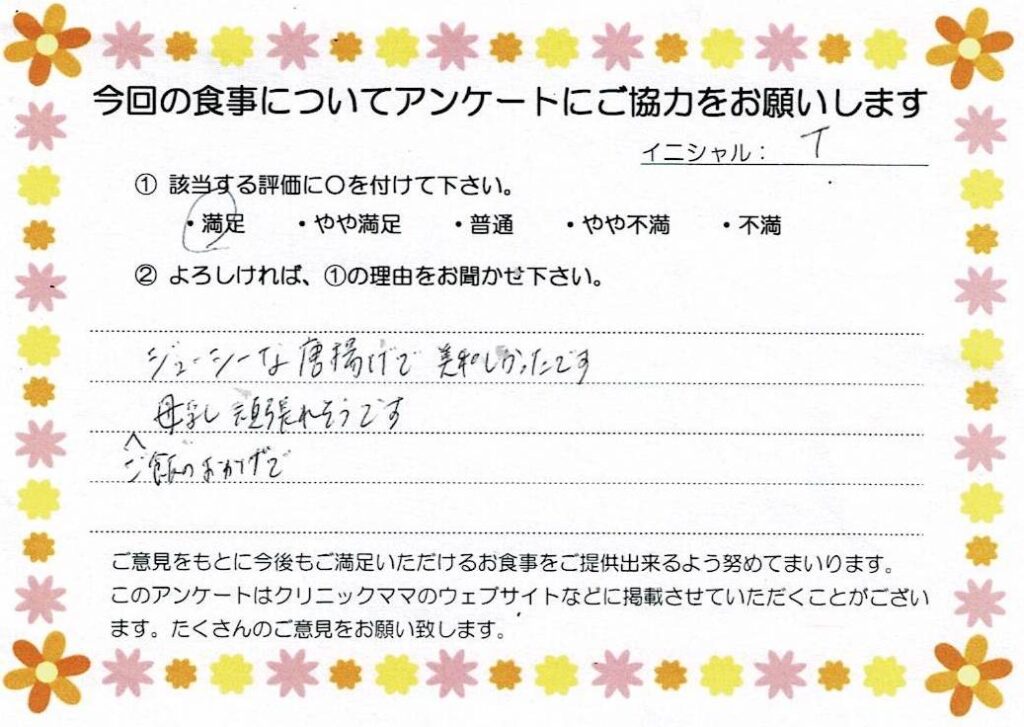 今回の食事についてアンケートにご協力をお願いします
イニシャル： T
① 該当する評価に〇を付けて下さい。
・満足 ・やや満足 ・普通 ・やや不満 ・不満
② よろしければ、①の理由をお聞かせ下さい。
ジューシーな唐揚げで 美味しかったです
母乳 頑張れそうです
ご飯のおかげで
ご意見をもとに今後もご満足いただけるお食事をご提供出来るよう努めてまいります。
このアンケートはクリニックママのウェブサイトなどに掲載させていただくことがござい
ます。たくさんのご意見をお願い致します。